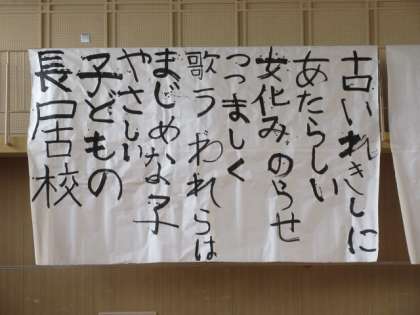 古いれきしに
あたらしい
文化みのらせ
つつましく
歌う われらは
まじめな子
やさしい
子どもの
長居校